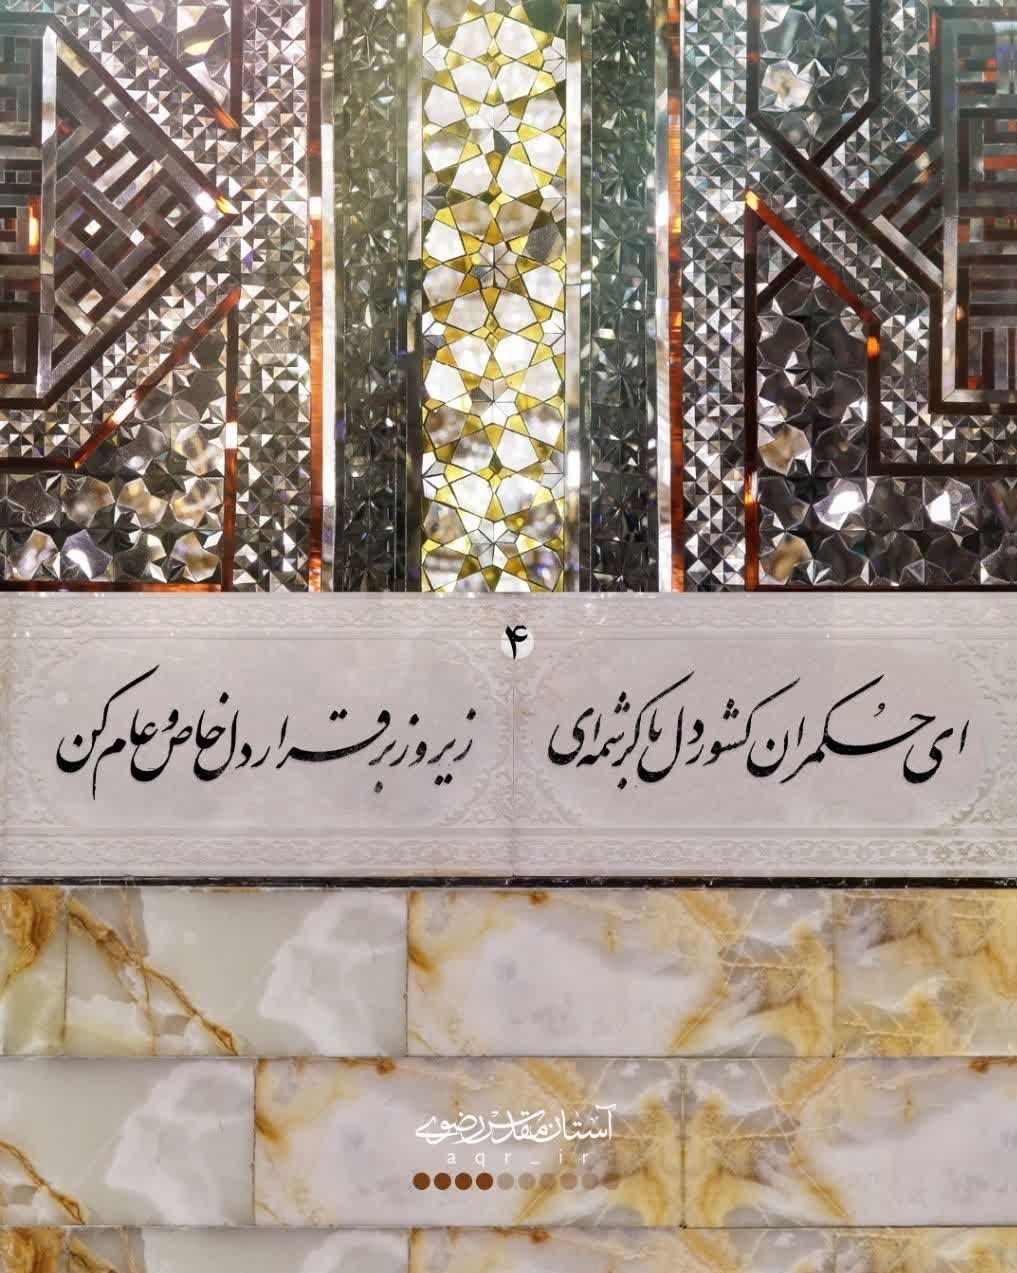 ۴
ای حکمران کشور دل با کرشمه‌ای
زیر و زبر قرار دل خاص و عام کن
آستان مقدس رضوی
aqr_ir